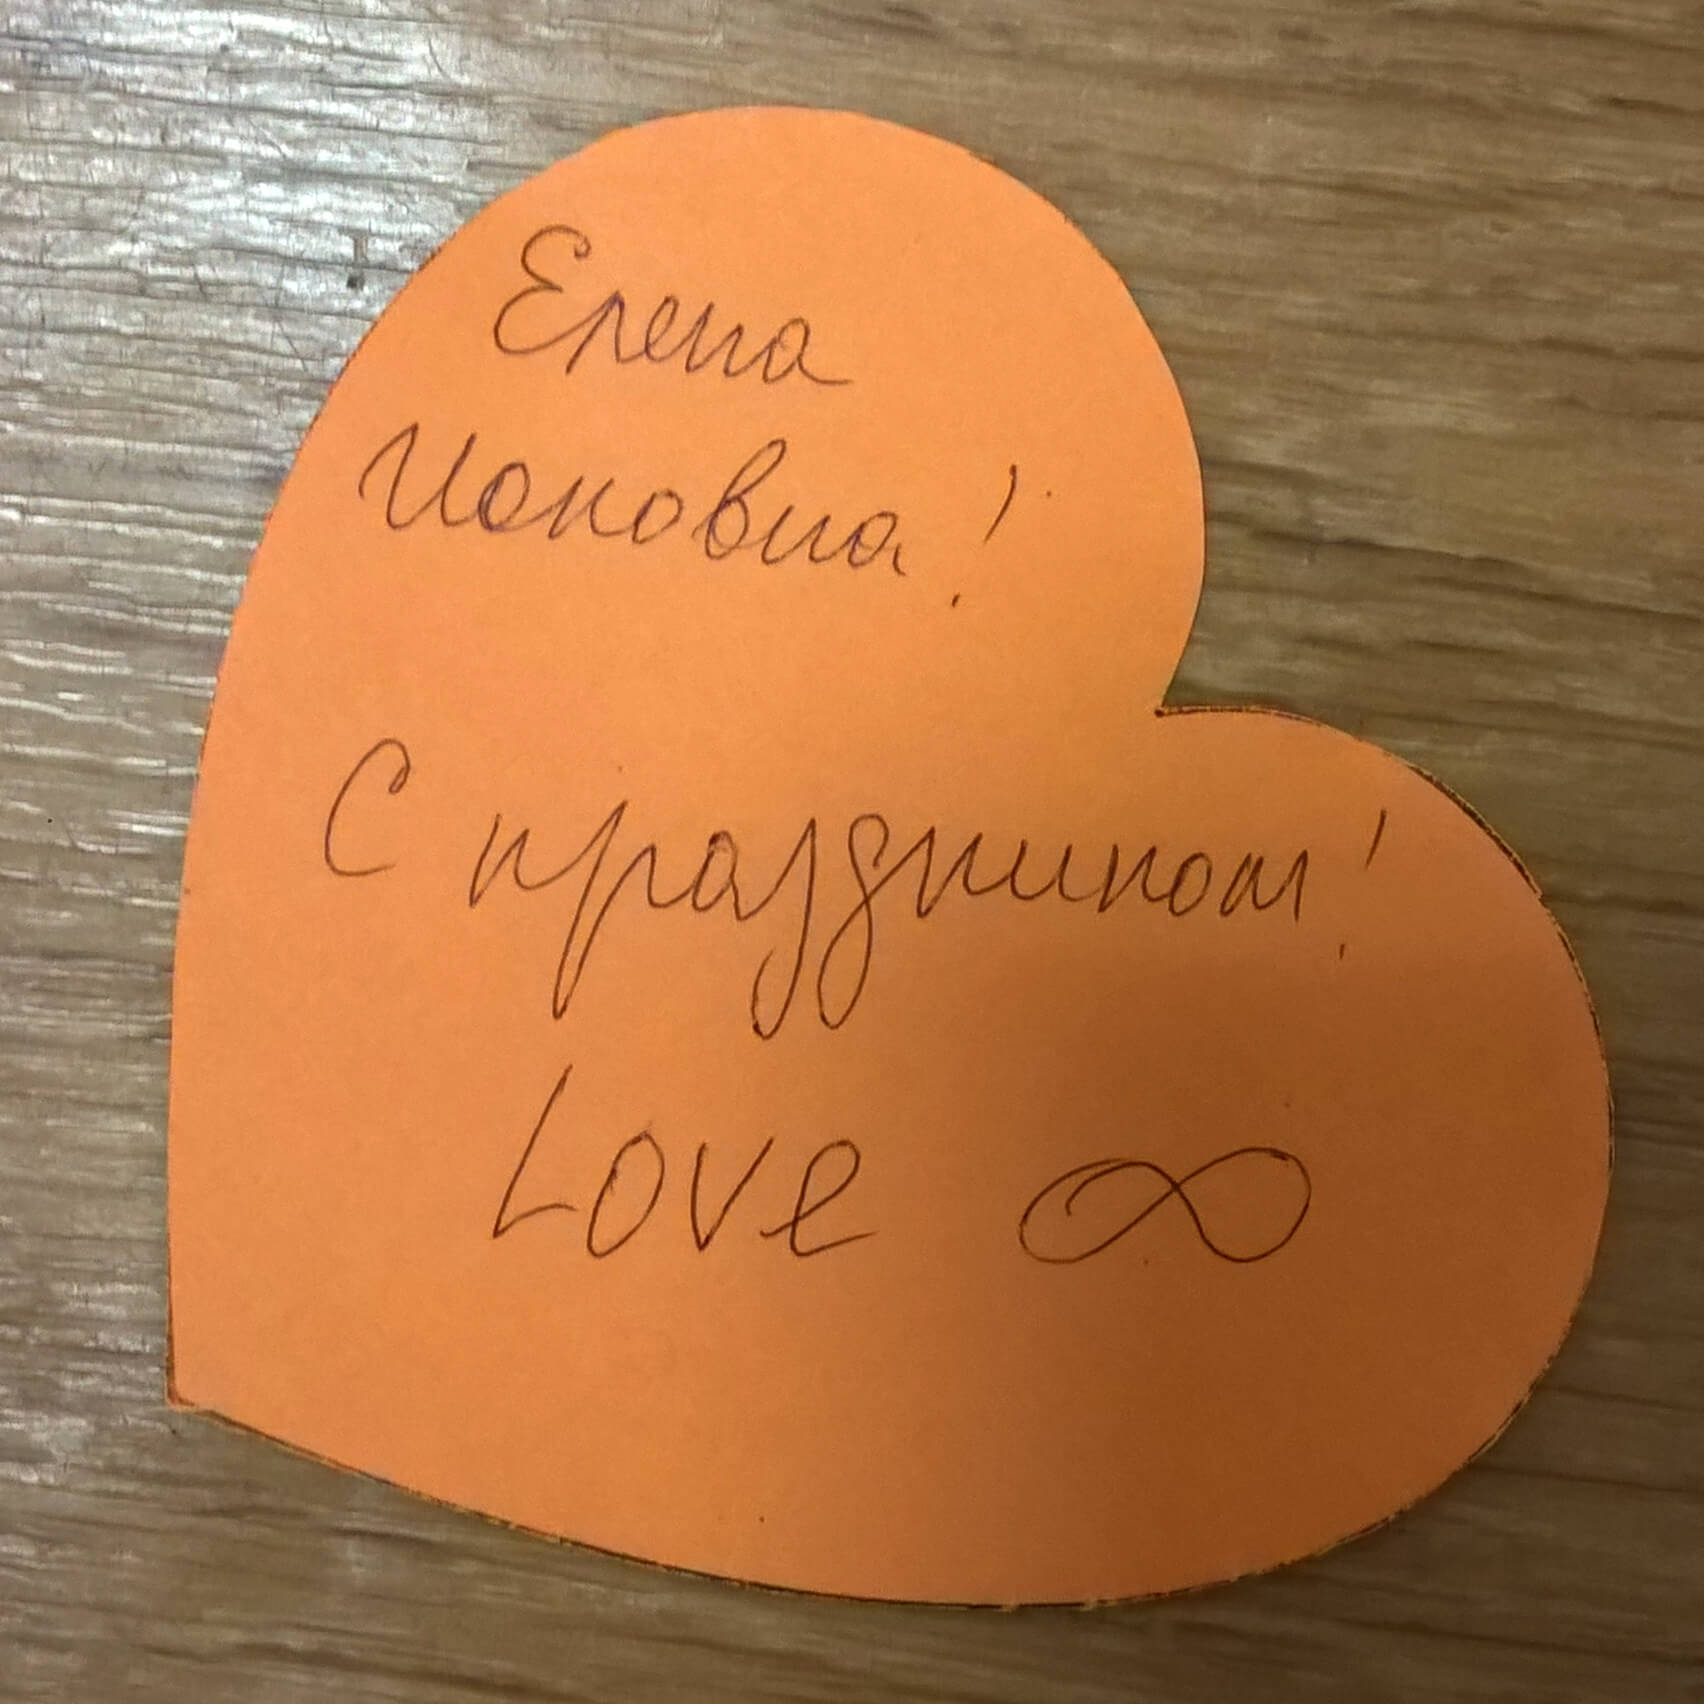 Елена
Ионовна!
С праздником!
Love ∞